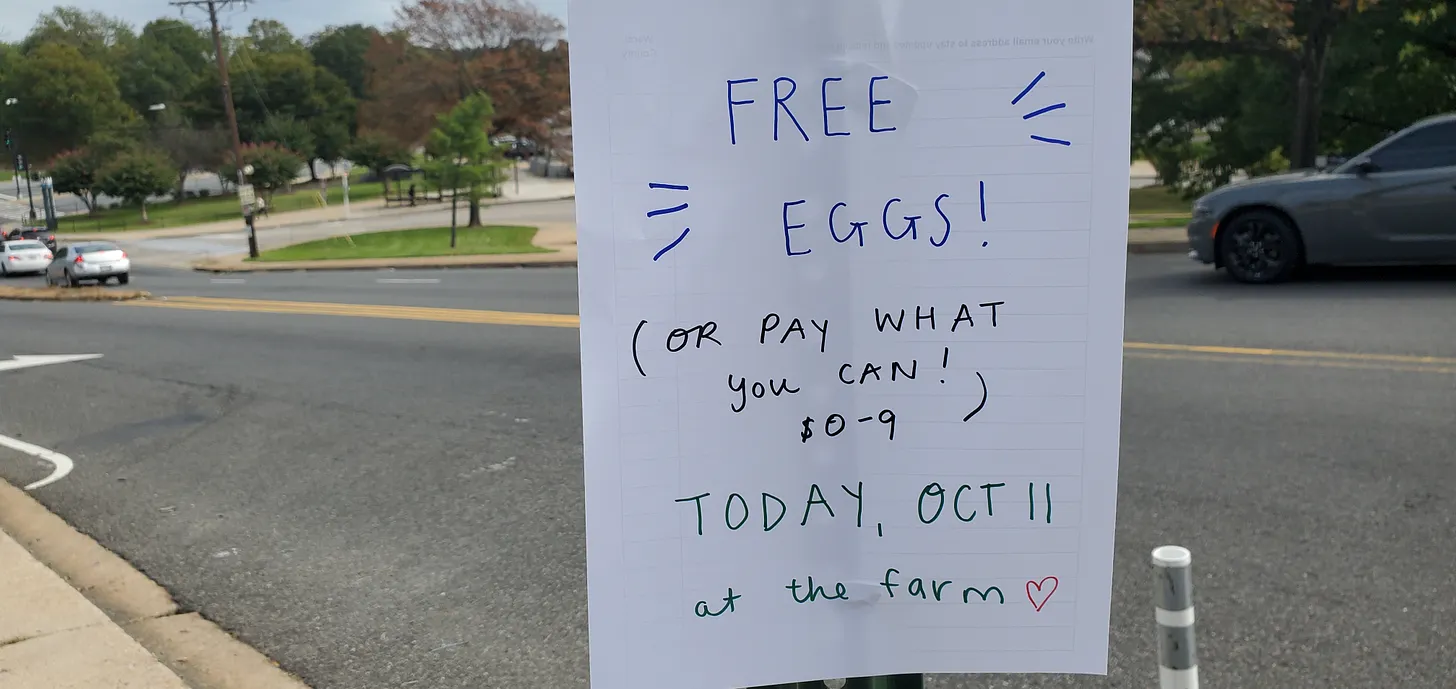 FREE
EGGS!
(OR PAY WHAT
you CAN!
$0-9)
TODAY, OCT 11
at the farm